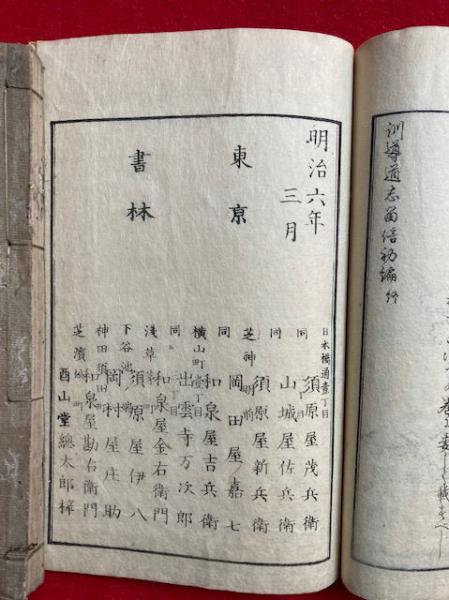 訓導道志留倍初編終
明治六年
三月
東京
書林
日本橋通壹丁目
須原屋茂兵衛
同
山城屋佐兵衛
同
須原屋新兵衛
芝神明前
岡田屋嘉七
同
和泉屋吉兵衛
横山町壹丁目
出雲寺万次郎
同
和泉屋金右衛門
浅草
須原屋伊八
下谷池
岡村屋庄助
神田須田町
和泉屋勘右衛門
芝濱
酉山堂總太郎梓